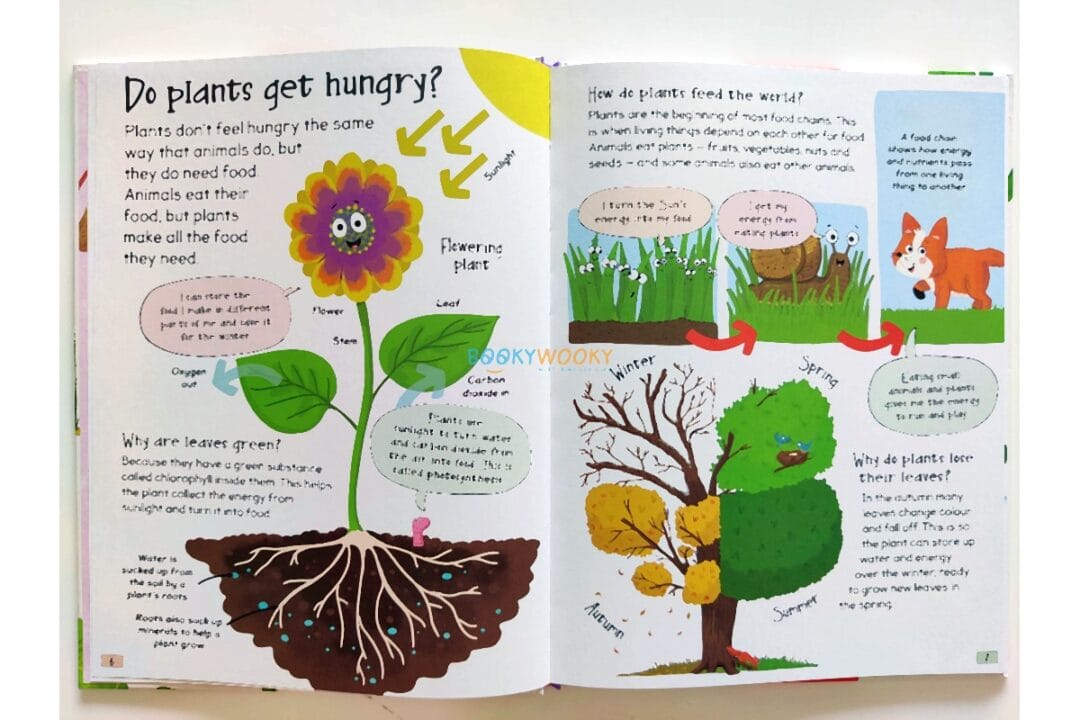 Do plants get hungry?
Plants don't feel hungry the same
way that animals do, but
they do need food.
Animals eat their
food, but plants
make all the food
they need.
Sunlight
Flowering
plant
I can store the
food I make in different
parts of me and save it
for the winter
Flower
Leaf
Stem
Oxygen
out
Carbon
dioxide in
Plants use
sunlight to turn water
and carbon dioxide from
the air into food. This is
called photosynthesis
Why are leaves green?
Because they have a green substance
called chlorophyll inside them. This helps
the plant collect the energy from
sunlight and turn it into food.
Water is
sucked up from
the soil by a
plant's roots
Roots also suck up
minerals to help a
plant grow
6
BOOKYWOOKY
How do plants feed the world?
Plants are the beginning of most food chains. This
is when living things depend on each other for food.
Animals eat plants – fruits, vegetables, nuts and
seeds – and some animals also eat other animals.
A food chain
shows how energy
and nutrients pass
from one living
thing to another
I turn the Sun's
energy into my food
I get my
energy from
eating plants
Eating small
animals and plants
gives me the energy
to run and play
Winter
Spring
Autumn
Summer
Why do plants lose
their leaves?
In the autumn many
leaves change colour
and fall off. This is so
the plant can store up
water and energy
over the winter, ready
to grow new leaves in
the spring.
7